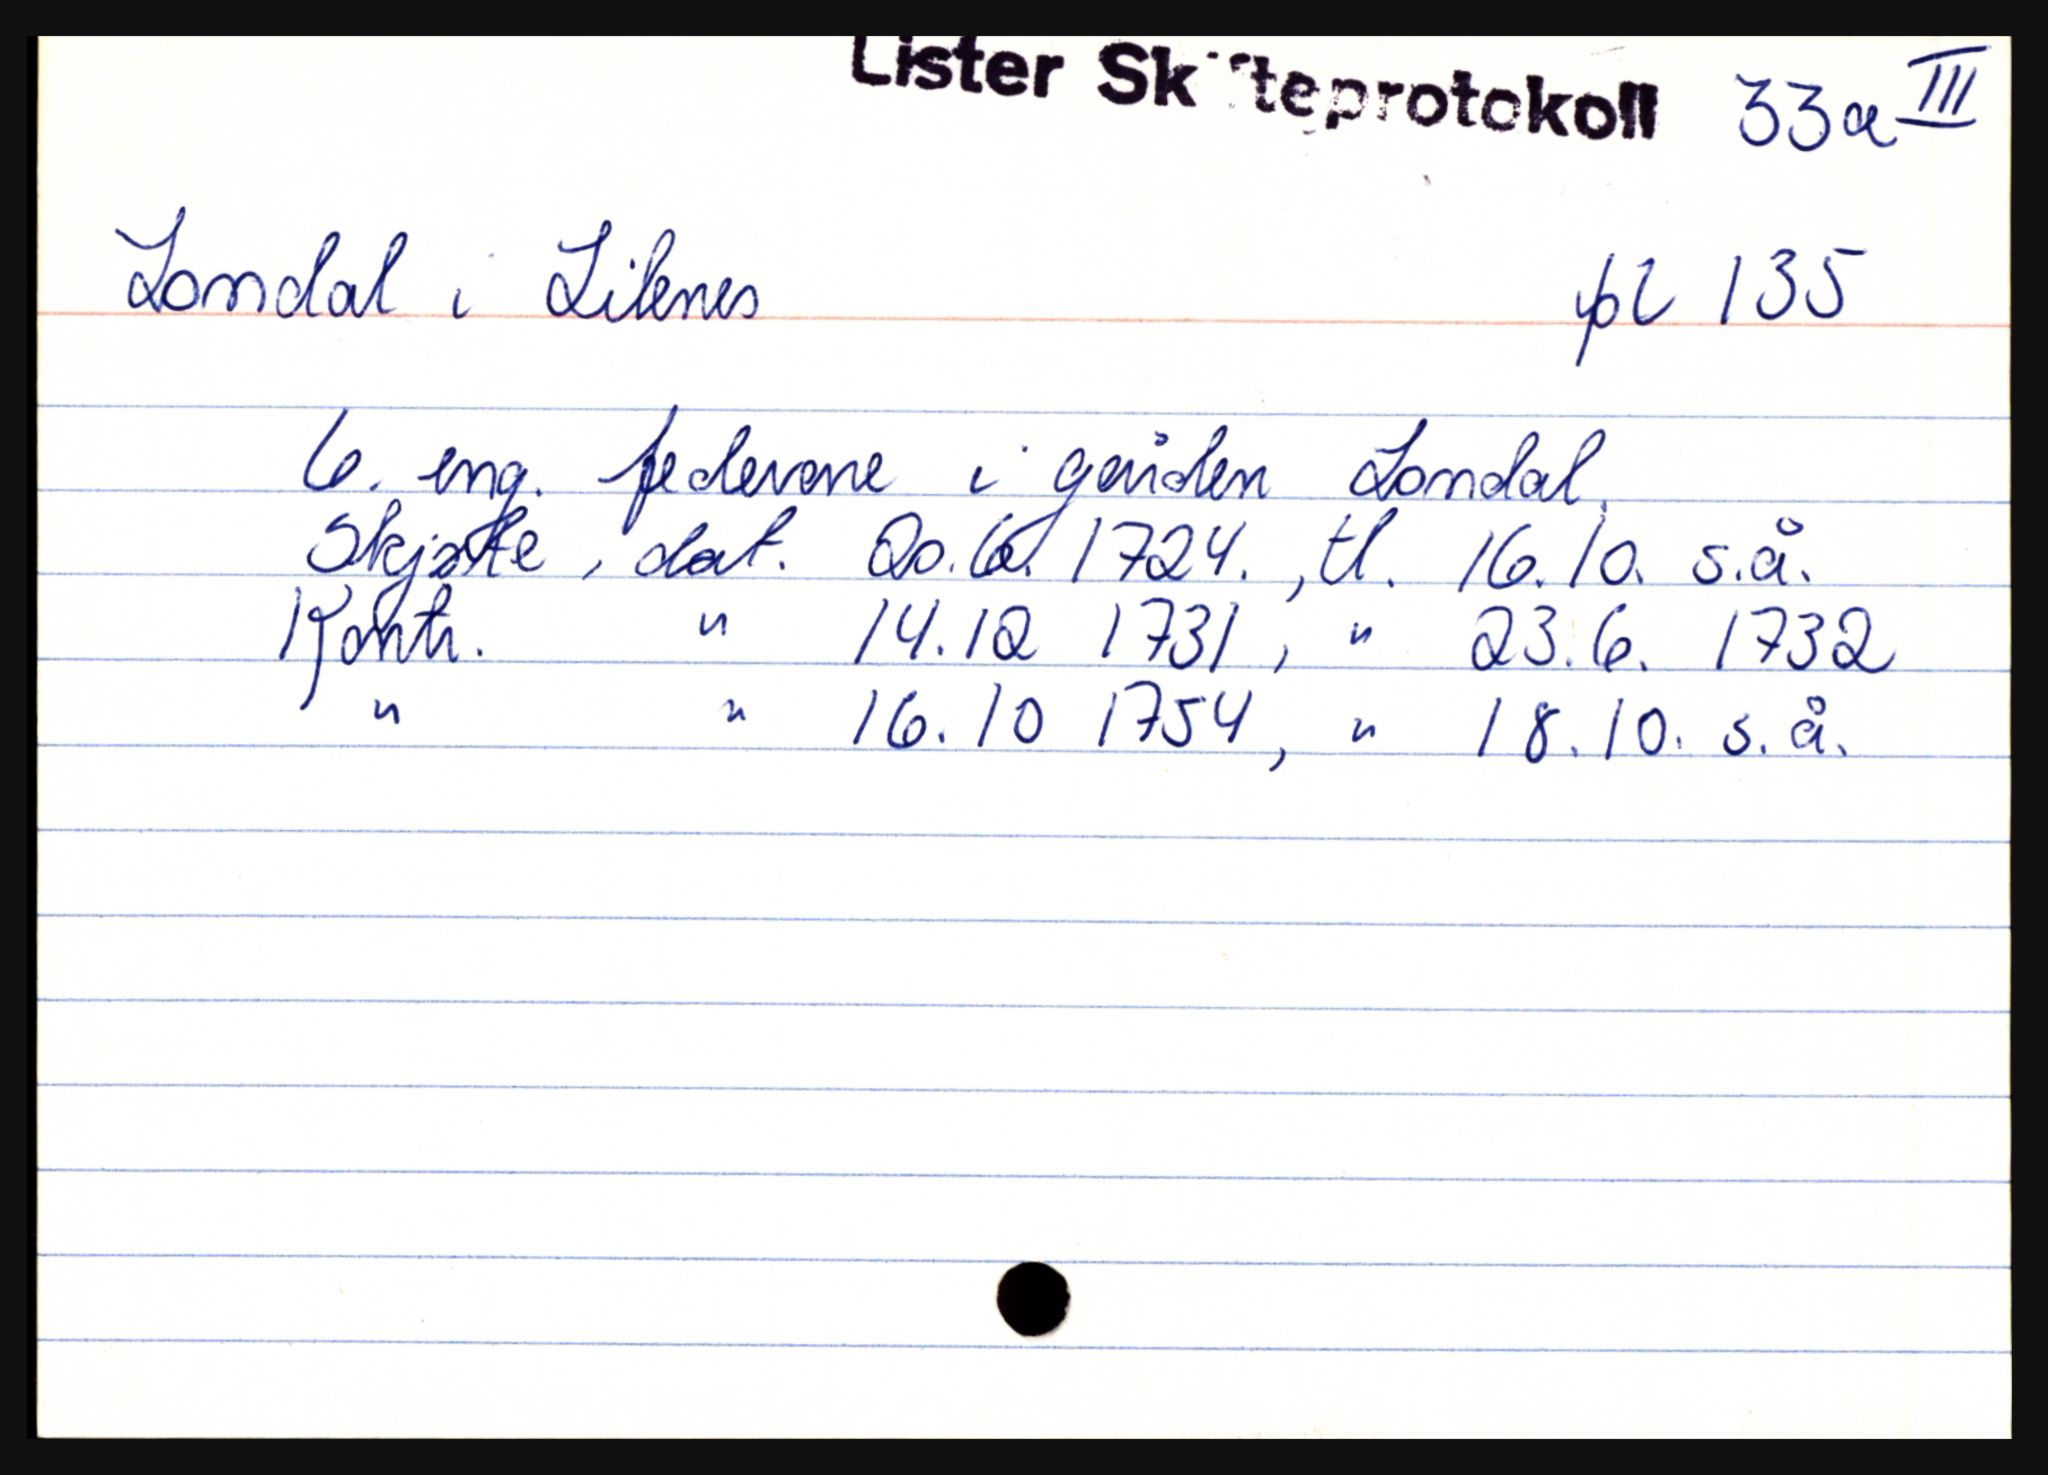 Lister Skifteprotokoll 33a III
Londal i Lilenes pl 135
6. eng. federone i gården Londal.
Skjøtte, dat. 20.6. 1724., tl. 16.10. s.å.
Kontr. " 14.12 1731, " 23.6. 1732
" " 16.10 1754, " 18.10. s.å.